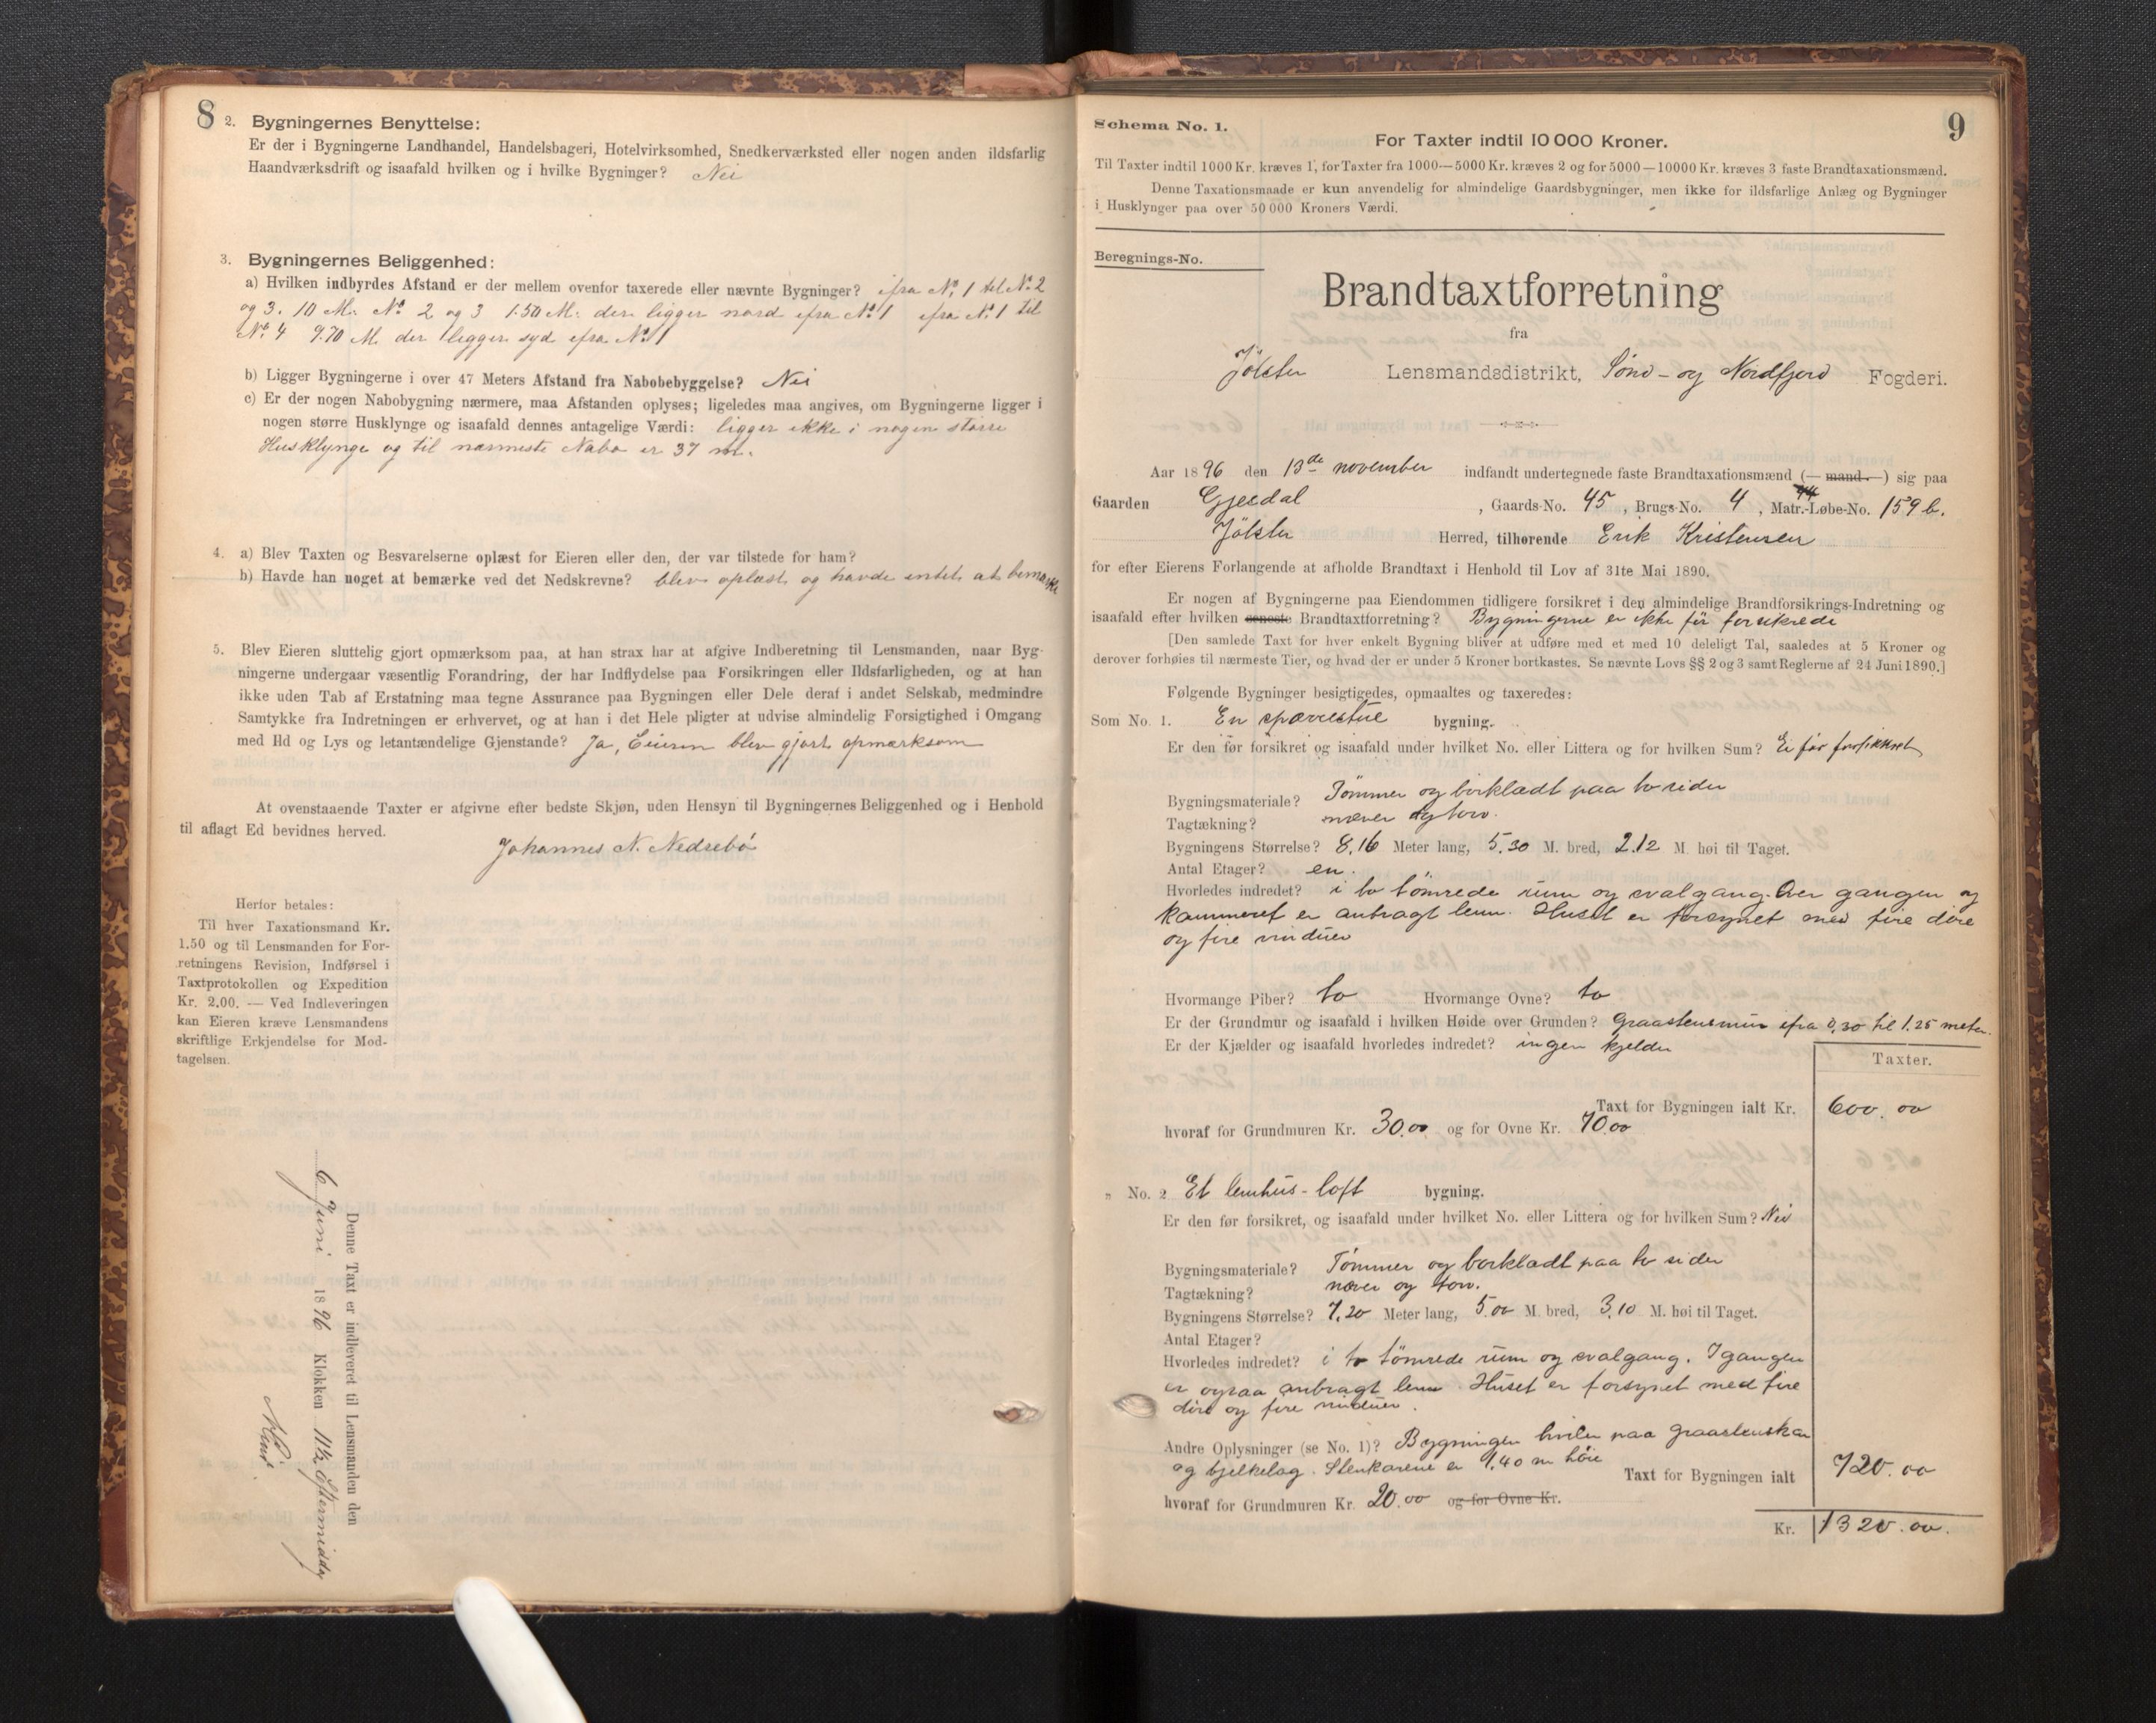 8
2. Bygningernes Benyttelse:
Er der i Bygningerne Landhandel, Handelsbageri, Hotelvirksomhed, Snedkerværksted eller nogen anden ildsfarlig
Haandværksdrift og isaafald hvilken og i hvilke Bygninger? Nei
3. Bygningernes Beliggenhed:
a) Hvilken indbyrdes Afstand er der mellem ovenfor taxerede eller nævnte Bygninger? ifra No. 1 til No. 2
og 3. 10 M. No. 2 og 3 1.50 M. der ligger nord ifra No. 1 ifra No. 1 til
No. 4 9.70 M. der ligger syd ifra No. 1
b) Ligger Bygningerne i over 47 Meters Afstand fra Nabobebyggelse? Nei
c) Er der nogen Nabobygning nærmere, maa Afstanden oplyses; ligeledes maa angives, om Bygningerne ligger i
nogen større Husklynge og isaafald dennes antagelige Værdi: ligger ikke i nogen større
Husklynge og til nærmeste Nabo er 37 m.
4. a) Blev Taxten og Besvarelserne oplæst for Eieren eller den, der var tilstede for ham?
b) Havde han noget at bemærke ved det Nedskrevne? blev oplæst og havde intet at bemærke
5. Blev Eieren sluttelig gjort opmærksom paa, at han strax har at afgive Indberetning til Lensmanden, naar Byg-
ningerne undergaar væsentlig Forandring, der har Indflydelse paa Forsikringen eller Ildsfarligheden, og at han
ikke uden Tab af Erstatning maa tegne Assurance paa Bygningen eller Dele deraf i andet Selskab, medmindre
Samtykke fra Indretningen er erhvervet, og at han i det Hele pligter at udvise almindelig Forsigtighed i Omgang
med Ild og Lys og letantændelige Gjenstande? Ja, Eieren blev gjort opmærksom
At ovenstaaende Taxter er afgivne efter bedste Skjøn, uden Hensyn til Bygningernes Beliggenhed og i Henhold
til aflagt Ed bevidnes herved.
Johannes N. Nedrebö
Herfor betales:
Til hver Taxationsmand Kr.
1.50 og til Lensmanden for For-
retningens Revision, Indførsel i
Taxtprotokollen og Expedition
Kr. 2.00. — Ved Indleveringen
kan Eieren kræve Lensmandens
skriftlige Erkjendelse for Mod-
tagelsen.
Denne Taxt er indleveret til Lensmanden den
6 Juni 1896 Klokken 11½ Eftermiddag
9
Schema No. 1.
For Taxter indtil 10 000 Kroner.
Til Taxter indtil 1000 Kr. kræves 1, for Taxter fra 1000—5000 Kr. kræves 2 og for 5000—10000 Kr. kræves 3 faste Brandtaxationsmænd.
Denne Taxationsmaade er kun anvendelig for almindelige Gaardsbygninger, men ikke for ildsfarlige Anlæg og Bygninger
i Husklynger paa over 50 000 Kroners Værdi.
Beregnings-No.
Brandtaxtforretning
fra
Jölster Lensmandsdistrikt, Sönd- og Nordfjord Fogderi.
Aar 1896 den 13de november indfandt undertegnede faste Brandtaxationsmænd (— mand.—) sig paa
Gaarden Gjesdal, Gaards-No. 45, Brugs-No. 4, Matr.-Løbe-No. 159 b.
Jölster Herred, tilhørende Erik Kristensen
for efter Eierens Forlangende at afholde Brandtaxt i Henhold til Lov af 31te Mai 1890.
Er nogen af Bygningerne paa Eiendommen tidligere forsikret i den almindelige Brandforsikrings-Indretning og
isaafald efter hvilken seneste Brandtaxtforretning? Bygningerne er ikke för forsikrede
[Den samlede Taxt for hver enkelt Bygning bliver at udføre med et med 10 deleligt Tal, saaledes at 5 Kroner og
derover forhøies til nærmeste Tier, og hvad der er under 5 Kroner bortkastes. Se nævnte Lovs §§ 2 og 3 samt Reglerne af 24 Juni 1890.]
Følgende Bygninger besigtigedes, opmaaltes og taxeredes:
Som No. 1. En sperrestue bygning.
Er den før forsikret og isaafald under hvilket No. eller Littera og for hvilken Sum? Ei för forsikkret
Bygningsmateriale? Tömmer og bordklædt paa to sider
Tagtækning? næver og torv.
Bygningens Størrelse? 8,16 Meter lang, 5.30 M. bred, 2.12 M. høi til Taget.
Antal Etager? en.
Hvorledes indredet? i to tömrede rum og svalgang. Over gangen og
kammeret er anbragt lem. Huset er forsynet med fire döre
og fire vinduer
Hvormange Piber? to Hvormange Ovne? to
Er der Grundmur og isaafald i hvilken Høide over Grunden? Graastensmur ifra 0,30 til 1.25 meter.
Er der Kjælder og isaafald hvorledes indredet? ingen kjelder
Taxter.
Taxt for Bygningen ialt Kr. 600.00
hvoraf for Grundmuren Kr. 30.00 og for Ovne Kr. 70.00
" No. 2 Et lemhus-loft bygning.
Er den før forsikret, og isaafald under hvilket No. eller Littera og for hvilken Sum? Nei
Bygningsmateriale? Tömmer og bordklædt paa to sider
Tagtækning? næver og torv.
Bygningens Størrelse? 7.20 Meter lang, 5.00 M. bred, 3.10 M. høi til Taget.
Antal Etager?
Hvorledes indredet? i to tömrede rum og svalgang. I gangen
er ogsaa anbragt lem. Huset er forsynet med fire
döre og fire vinduer.
Andre Oplysninger (se No. 1)? Bygningen hviler paa graastenskar
og bjelkelag. Stenkarene er 1.40 m höie
Taxt for Bygningen ialt 720.00
hvoraf for Grundmuren Kr. 20.00 og for Ovne Kr.
Kr. 1320.00.